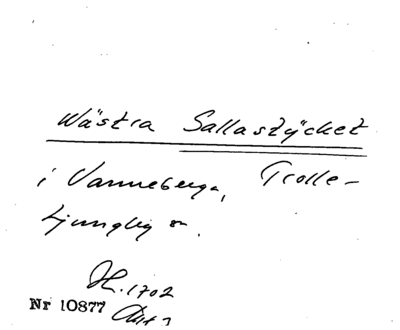 Wästra Sallastÿcket
i Vanneberga, Trolle-
Ljungby sn.
H. 1702
Nr 10877